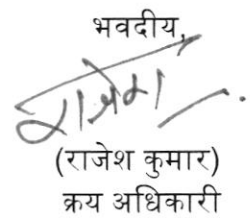 भवदीय,
राजेश
(राजेश कुमार)
क्रय अधिकारी